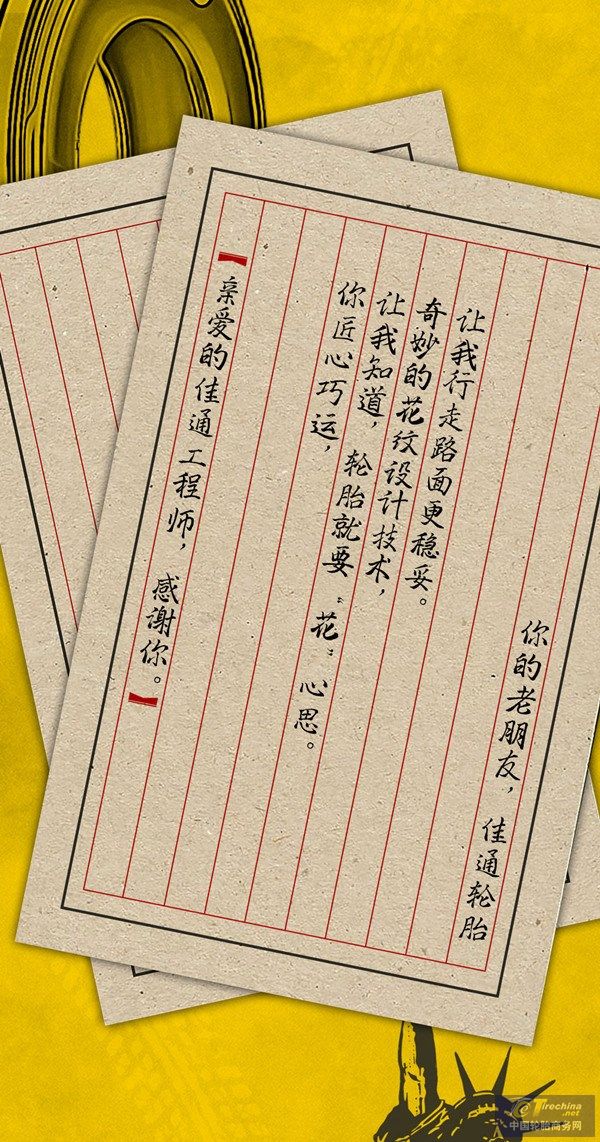 【亲爱的佳通工程师，感谢你。】
你匠心巧运，
让我知道，轮胎就要“花”心思。
奇妙的花纹设计技术，
让我行走路面更稳妥。
你的老朋友，佳通轮胎
Tirechina.net
中国轮胎商务网